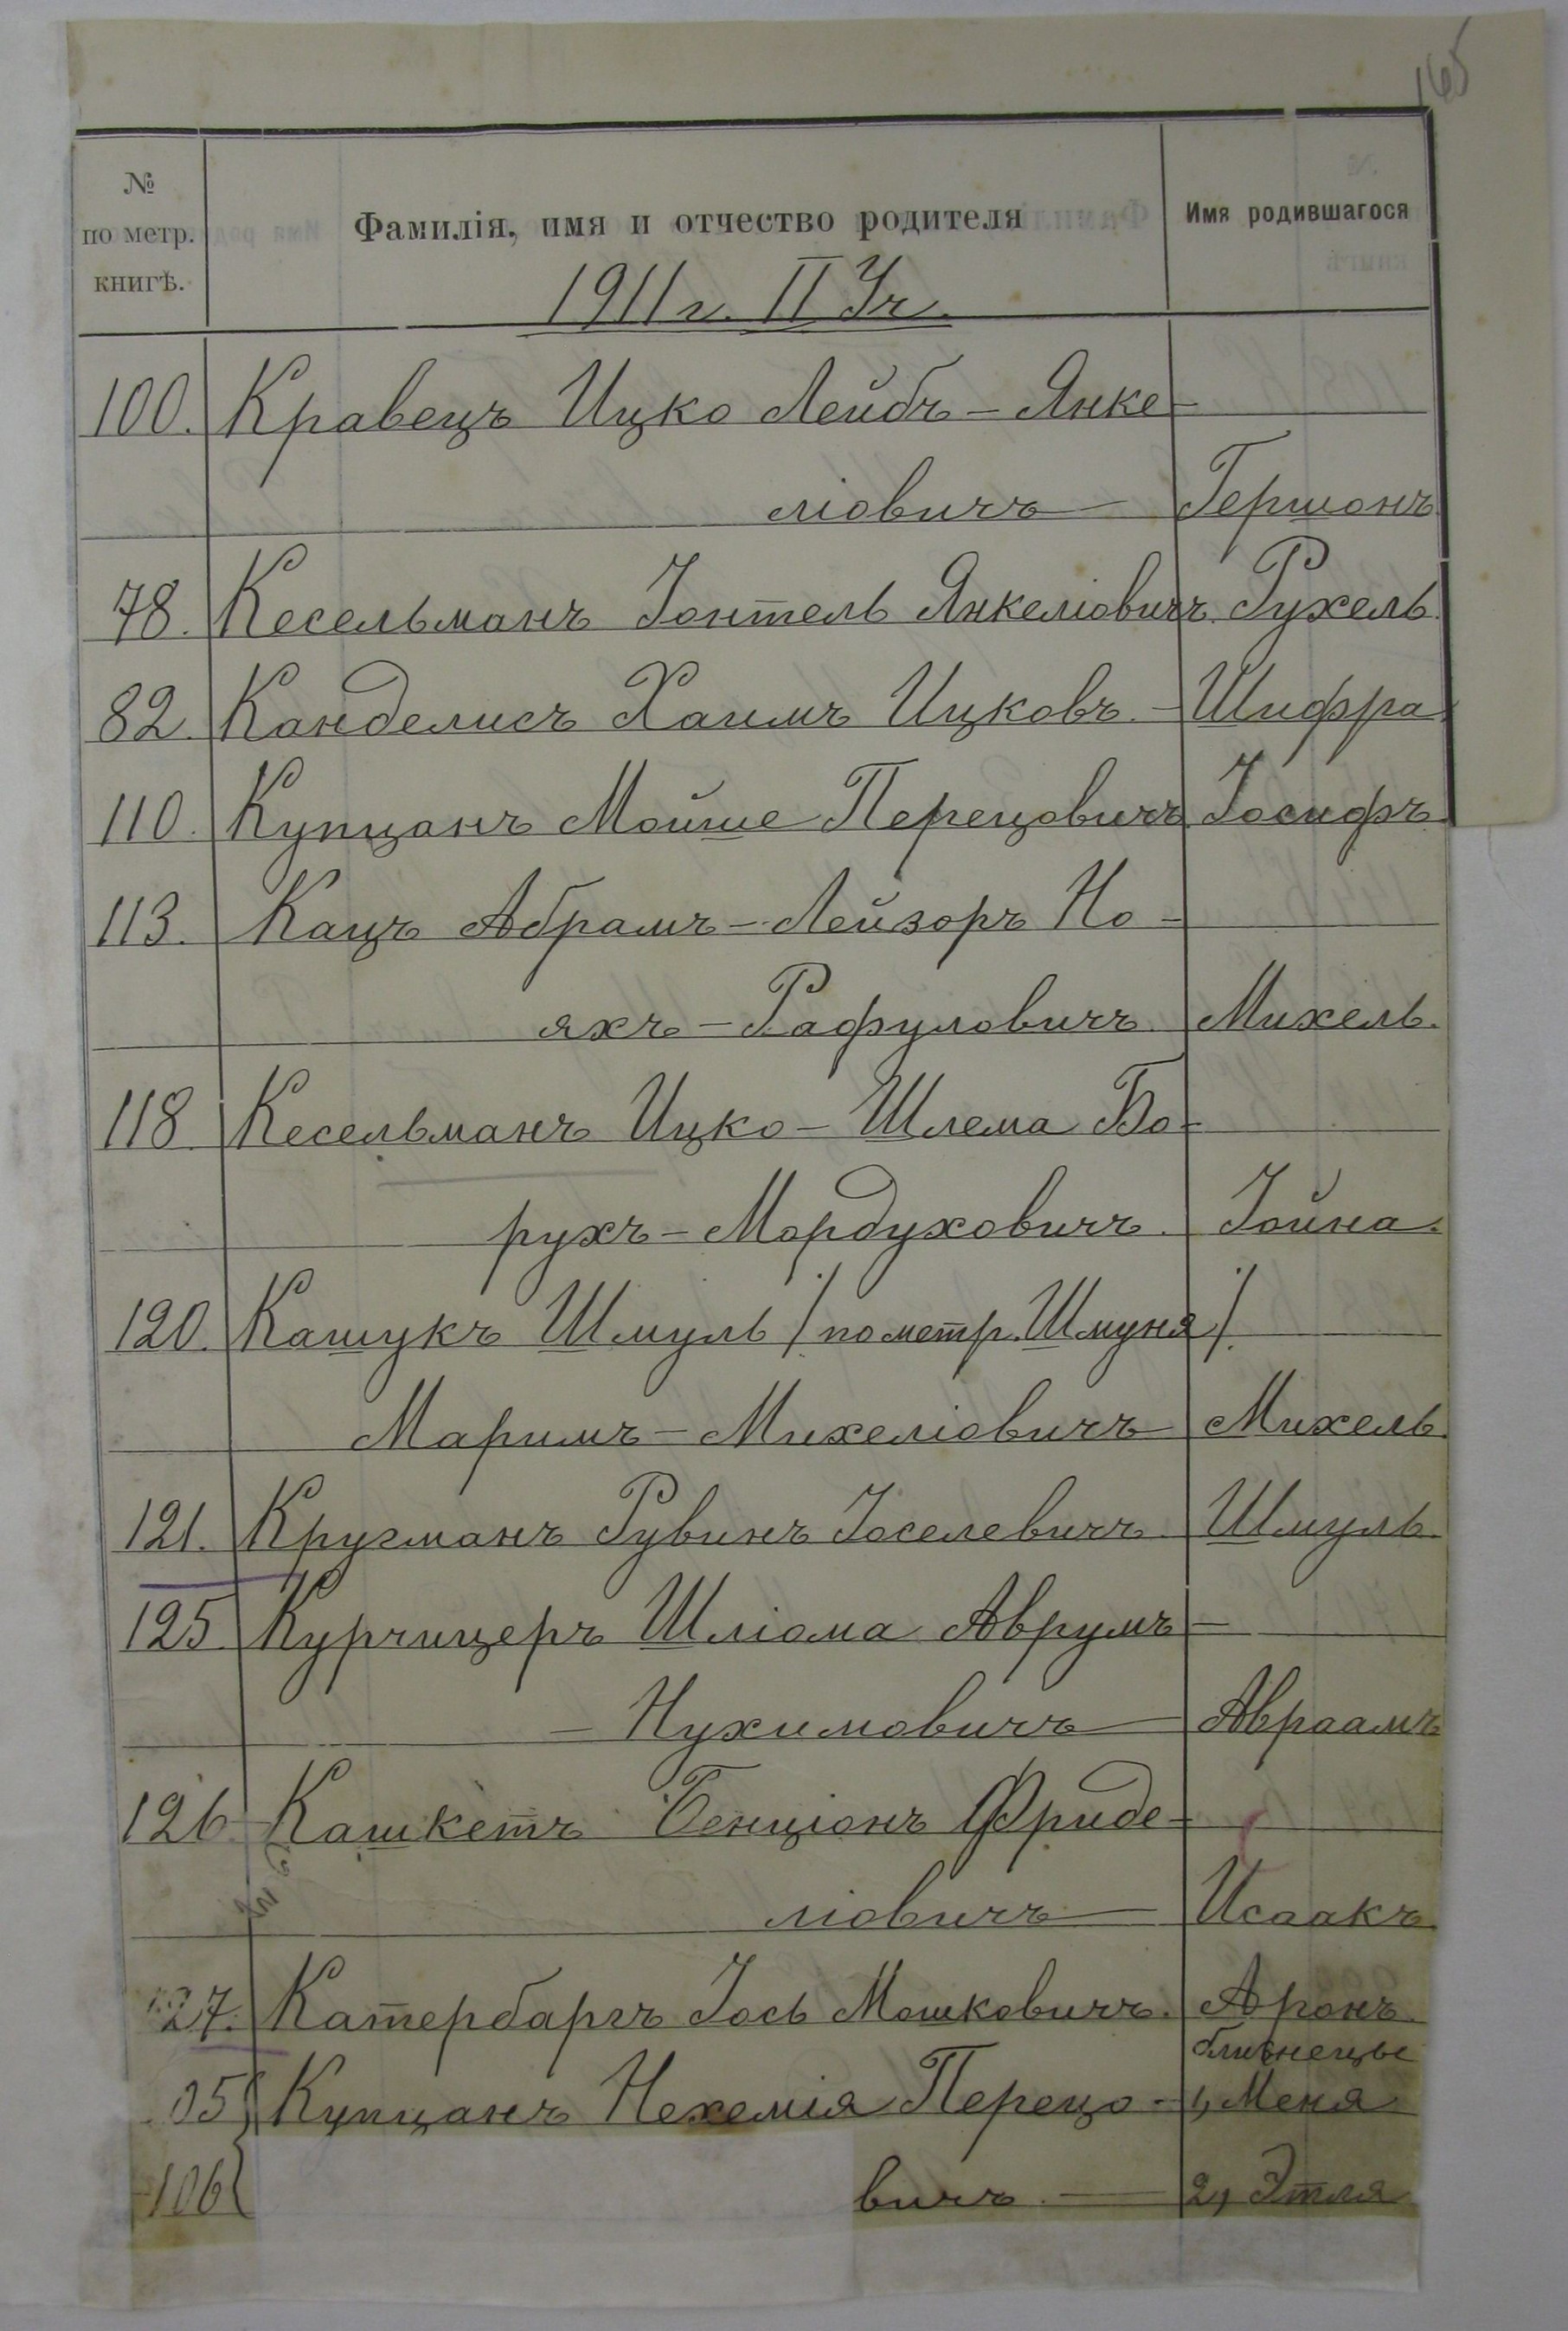 165
№ по метр. книгѣ.
Фамилія, имя и отчество родителя
Имя родившагося
1911 г. II Уч.
100. Кравецъ Ицко Лейбъ - Янке-
ліовичъ — Гершонъ
78. Кесельманъ Іонтель Янкеліовичъ. Рухель.
82. Канделисъ Хаимъ Ицковъ. - Шифра.
110. Купцанъ Мойше Перецовичъ. Іосифъ
113. Кацъ Абрамъ - Лейзоръ Но-
яхъ - Рафуловичъ. Михель.
118. Кесельманъ Ицко - Шлема Бо-
рухъ - Мордуховичъ. Іойна.
120. Кашукъ Шмуль /по метр. Шмуня/
Маримъ - Михеліовичъ Михель.
121. Кругманъ Рувинъ Іоселевичъ Шмуль.
125. Курчицеръ Шліома Аврумъ -
- Нухимовичъ — Авраамъ
126. Кашкетъ Бенціонъ Фриде-
ліовичъ — Исаакъ.
127. Катербаргъ Іось Мошковичъ. Аронъ.
близнецы
05 { Купцанъ Нехемія Перецо- 1, Меня
106 { вичъ. — 2, Этля